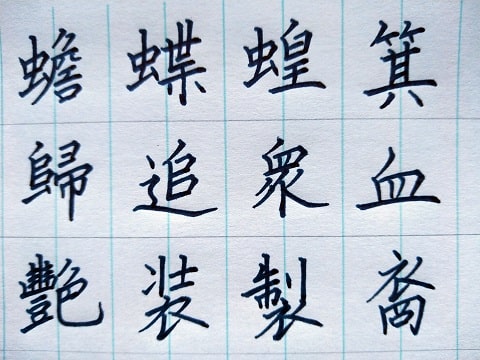 蟾蝶蝗箕
歸追衆血
艷装製裔